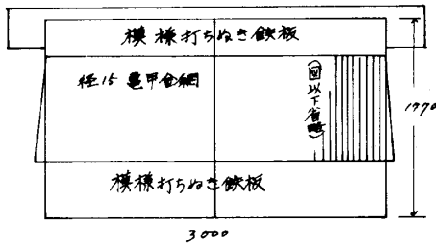 模様打ちぬき鉄板
径15 亀甲金網
(図以下省略)
1770
模様打ちぬき鉄板
3000